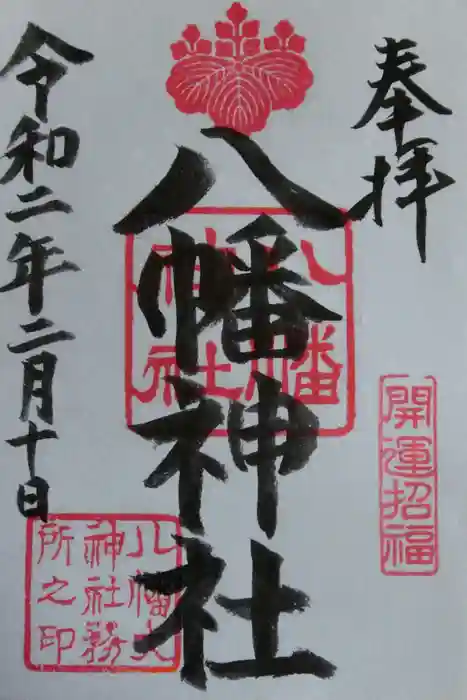 奉拝
八幡神社
令和二年二月十日
開運招福
八幡神社
八幡大
神社務
所之印